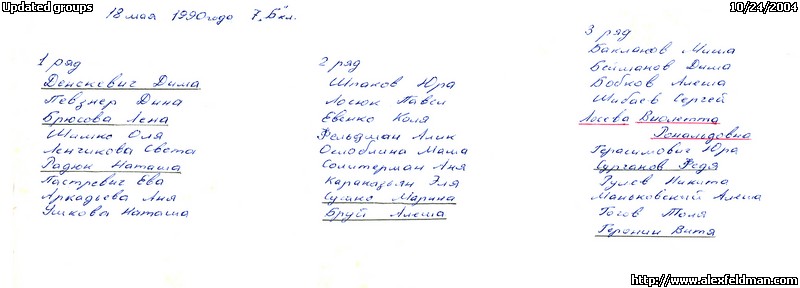 Updated groups
10/24/2004
18 мая 1990 года 7 "Б" кл.
1 ряд
Денскевич Дима
Певзнер Дина
Брюсова Лена
Шишко Оля
Ленчикова Света
Радюк Наташа
Пастревич Ева
Аркадьева Аня
Яшкова Наташа
2 ряд
Шпаков Юра
Лосюк Павел
Евенко Коля
Фельдман Алик
Ослоблина Маша
Солитерман Аня
Караназьян Эля
Сушко Марина
Бруй Алеша
3 ряд
Бакланов Миша
Бейманов Дима
Бобков Алеша
Шибаев Сергей
Виолетта
Рональдовна
Герасимович Юра
Сурганов Федя
Рулев Никита
Маньковский Алеша
Гогов Толя
Геронин Витя
http://www.alexfeldman.com/